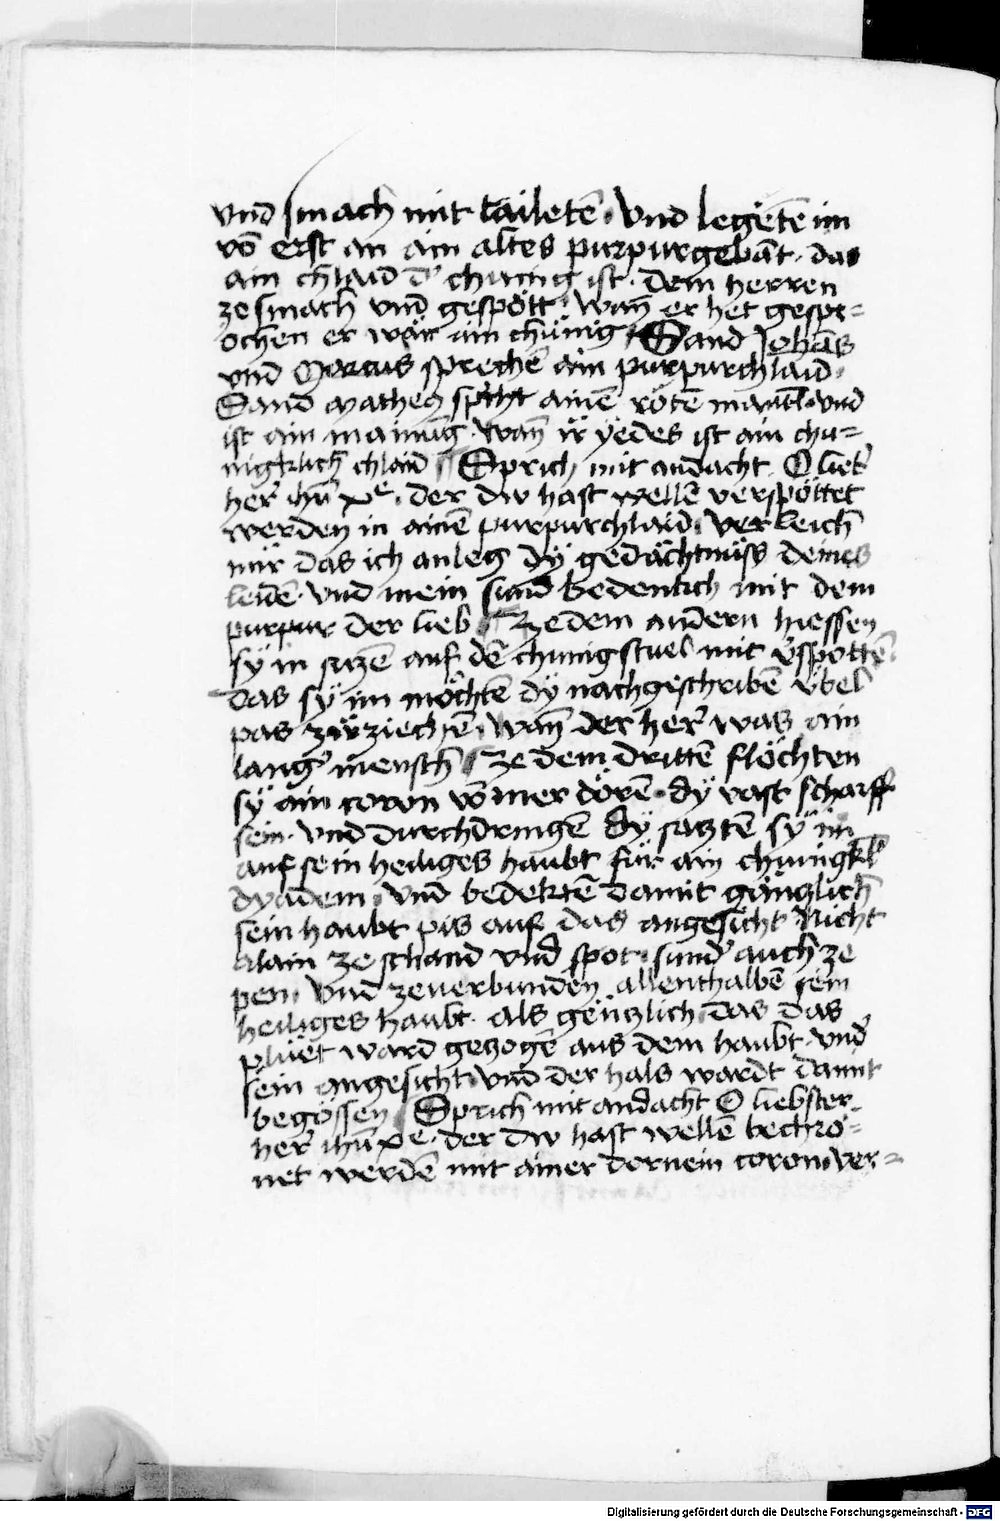 vnd smach mit taileten · Vnd legeten im
vō erst an ain altes purpurgebāt · das
ain chlaid d' chunig ist · dem herren
ze smach vnd gespött · wañ er het gespr=
ochen er wär ain chünig Sand Johās
vnd Marcus sprechē ain purpurchlaid ·
Sand Matheus spricht ainē rötē mantl · vnd
ist ain mainūg · wañ ir yedes ist ain chu=
nigklich chlaid Sprich mit andacht · O lieb'
her' ihū xp̄e · der dw hast wellē verspöttet
werden in ainē purpurchlaid · verleich
mir das ich anleg dy gedächtnüss deines
leidē · vnd mein sund bedenkch mit dem
purpur der lieb Ze dem andern hiessen
sy in sitzē auf dē chunigstuel mit v'spottē ·
das sy im möchtē dy nachgeschribē übel
pas zuziechē · wañ der her' was ain
lang' mensch Ze dem dritten flöchten
sy ain coron vō mer dörē · dy vast scharff
sein · vnd durchdringē dy satztē sy im
auf sein heiliges haubt für ain chunigkl
dyadem · vnd bedektē damit gäntzlich
sein haubt pis auf das angesicht Nicht
alain ze schand vnd spot · sund' auch ze
pen · vnd zeuerbunden allenthalbē sein
heiliges haubt · als gëntzlich das das
pluet ward gezogē aus dem haubt · vnd
sein angesicht · vnd der hals wardt damit
begössen Sprich mit andacht O liebster
her' ihū xp̄e · der dw hast wellē bechrö=
net werdē mit ainer dornein coron · ver=
Digitalisierung gefördert durch die Deutsche Forschungsgemeinschaft - DFG